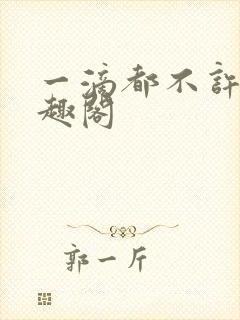 一滴都不許
趣閣
郭一斤